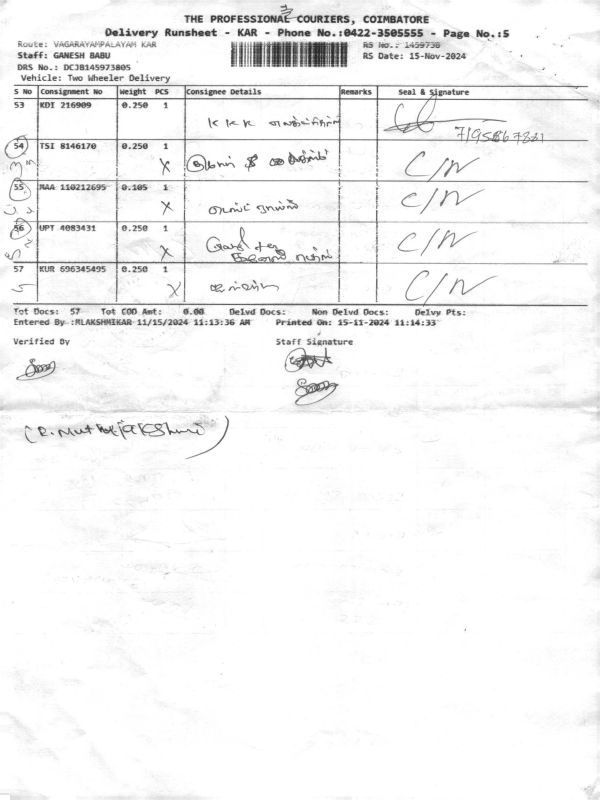 THE PROFESSIONAL COURIERS, COIMBATORE
Delivery Runsheet - KAR - Phone No.:0422-3505555 - Page No.:5
Route: VAGARAYAMPALAYAM KAR RS No.: 1459738
Staff: GANESH BABU RS Date: 15-Nov-2024
DRS No.: DCJB145973805
Vehicle: Two Wheeler Delivery
S No Consignment No Weight PCS Consignee Details Remarks Seal & Signature
53 KDI 216909 0.250 1
K K K
54 TSI 8146170 0.250 1
X C/N
55 MAA 110212695 0.105 1
X C/N
56 UPT 4083431 0.250 1
X C/N
57 KUR 696345495 0.250 1
X C/N
Tot Docs: 57 Tot COD Amt: 0.00 Delvd Docs: Non Delvd Docs: Delvy Pts:
Entered By :MLAKSHMIKAR 11/15/2024 11:13:36 AM Printed On: 15-11-2024 11:14:33
Verified By Staff Signature